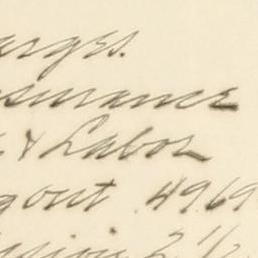 arges.
surance
& Labor
gout .4969
ssion 2 1/2